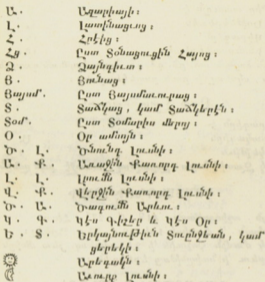 Ա. Ազարիայի:
Լ. Լատինացւոց:
Հ. Հրէից:
Հց. Ըստ Տօնացուցին Հայոց:
Յ. Յունաց:
Յայսմ. Ըստ Յայսմաւուրաց:
Տ. Տաճկաց, կամ Տաճկերէն:
Տօմ. Ըստ Տօմարիս մերոյ:
Օ. Օր ամսոյն:
Ծ. Լ. Ծնունդ Լուսնի:
Ա. Ք. Առաջին Քառորդ Լուսնի:
Լ. Լ. Լրումն Լուսնի:
Վ. Ք. Վերջին Քառորդ Լուսնի:
Ծ. Ա. Ծագումն Արևու:
Կ. Գ. Կէս Գիշեր և Կէս Օր:
Ե. Տ. Երկայնութիւն Տուընջեան, կամ
ցերեկի:
Արեգակն: